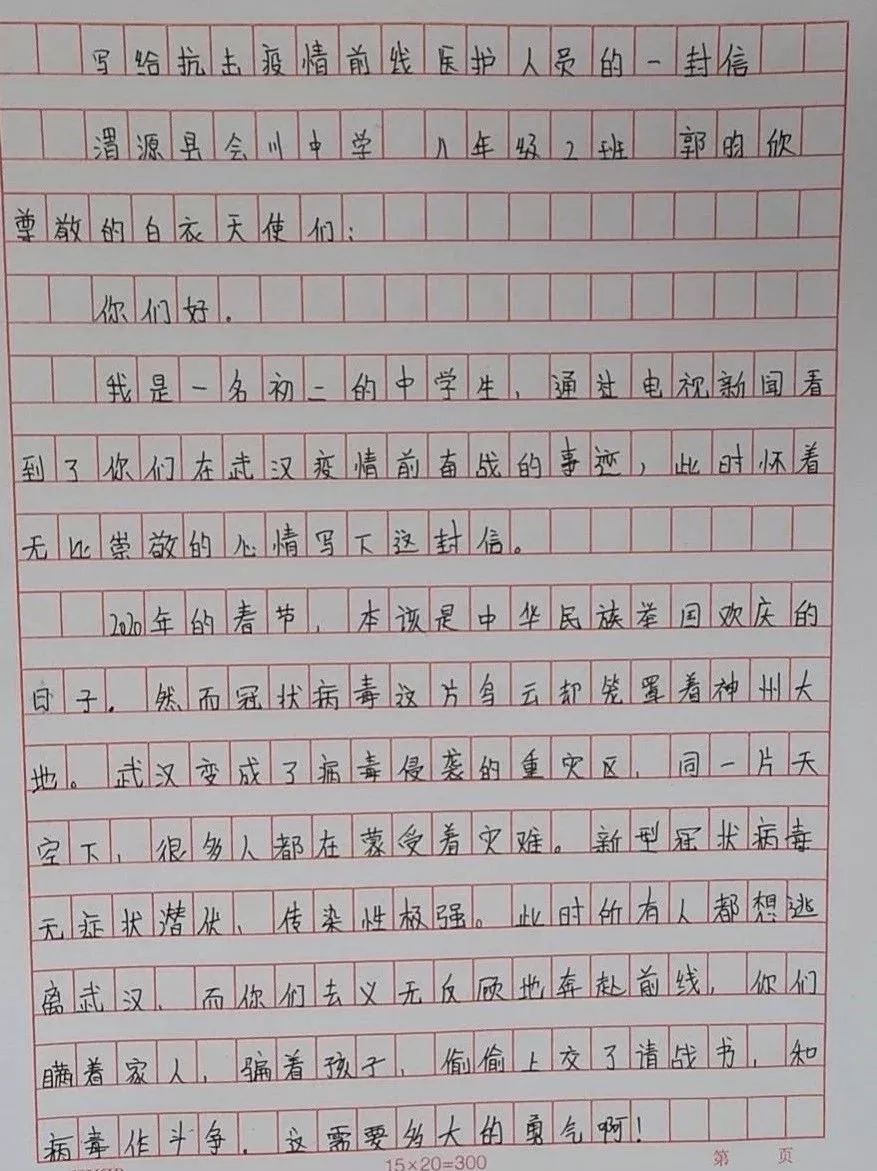 写给抗击疫情前线医护人员的一封信
渭源县会川中学 八年级2班 郭昀欣
尊敬的白衣天使们:
你们好.
我是一名初二的中学生,通过电视新闻看
到了你们在武汉疫情前奋战的事迹,此时怀着
无比崇敬的心情写下这封信。
2020年的春节,本该是中华民族举国欢庆的
日子.然而冠状病毒这片乌云却笼罩着神州大
地。武汉变成了病毒侵袭的重灾区,同一片天
空下,很多人都在蒙受着灾难。新型冠状病毒
无症状潜伏、传染性极强。此时所有人都想逃
离武汉,而你们去义无反顾地奔赴前线,你们
瞒着家人,骗着孩子,偷偷上交了请战书,和
病毒作斗争.这需要多大的勇气啊!
15×20=300
第 页